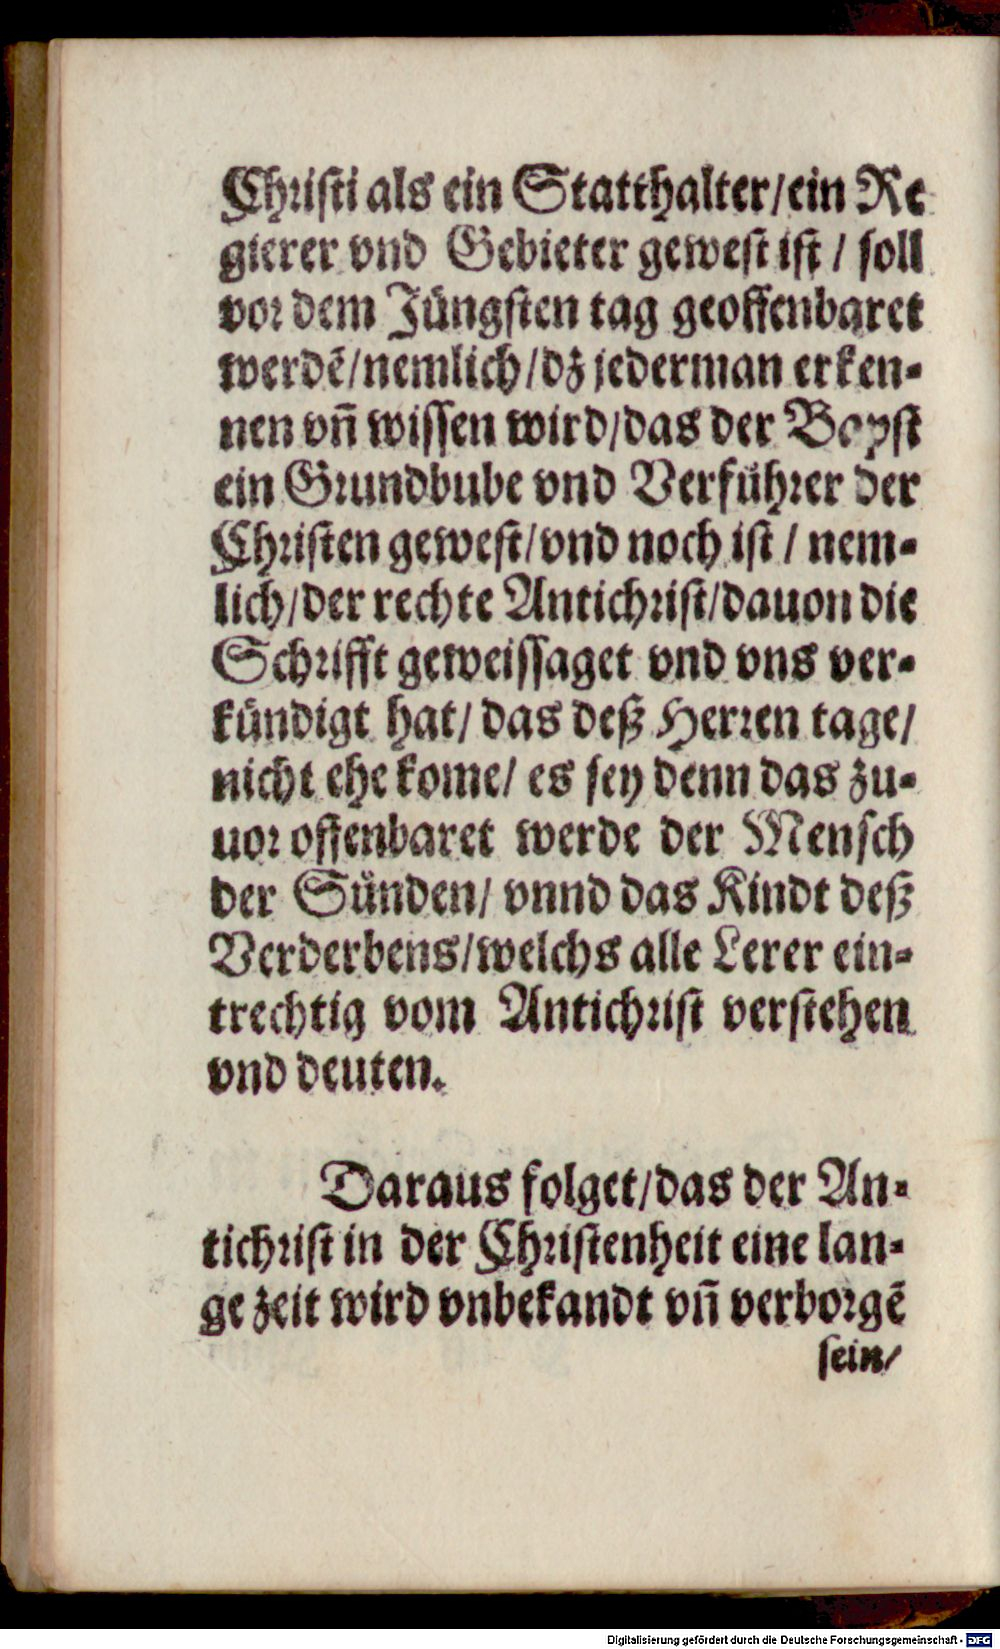 Chriſti als ein Statthalter/ein Re
gierer vnd Gebieter geweſt iſt / ſoll
vor dem Jüngſten tag geoffenbaret
werdē/nemlich/dz jederman erken-
nen vn̄ wiſſen wird/das der Bapſt
ein Grundbube vnd Verführer der
Chriſten geweſt/vnd noch iſt / nem-
lich/der rechte Antichriſt/dauon die
Schrifft geweiſſaget vnd vns ver-
kündigt hat/ das deß Herren tage/
nicht ehe kome/ es ſey denn das zu-
uor offenbaret werde der Menſch
der Sünden/ vnnd das Kindt deß
Verderbens/welchs alle Lerer ein-
trechtig vom Antichriſt verſtehen
vnd deuten.
Daraus folget/das der An-
tichriſt in der Chriſtenheit eine lan-
ge zeit wird vnbekandt vn̄ verborgē
ſein/
Digitalisierung gefördert durch die Deutsche Forschungsgemeinschaft - DFG